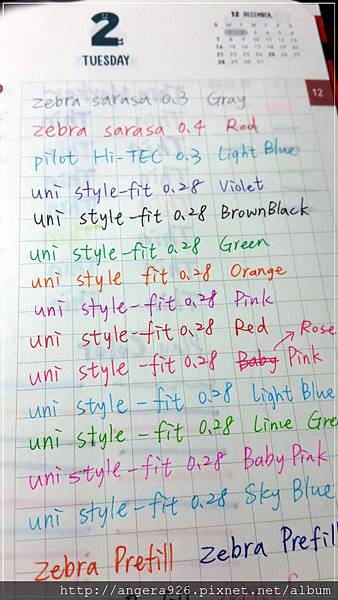 12 DECEMBER
2
TUESDAY
12
zebra sarasa 0.3 Gray
zebra sarasa 0.4 Red
pilot Hi-TEC 0.3 Light Blue
uni style-fit 0.28 Violet
uni style-fit 0.28 BrownBlack
uni style-fit 0.28 Green
uni style fit 0.28 Orange
uni style-fit 0.28 Pink
uni style-fit 0.28 Red
Rose
uni style-fit 0.28 Baby Pink
uni style-fit 0.28 Light Blue
uni style-fit 0.28 Lime Gre
uni style-fit 0.28 Baby Pink
uni style-fit 0.28 Sky Blue
zebra Prefill zebra Prefill
http://angera926.pixnet.net/album